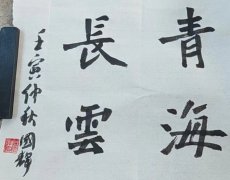 青海
長雲
壬寅仲秋國輝